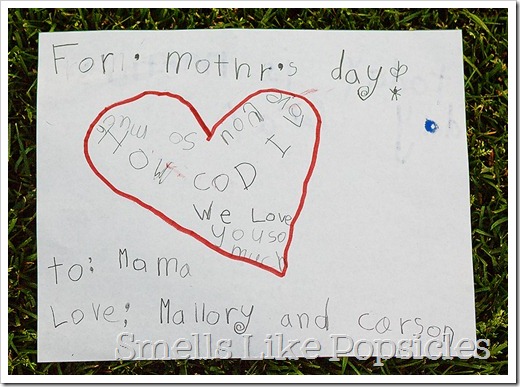 For: mothr's day!
I love you so
COD
We Love
you so
much
to: Mama
Love: Mallory and carson
Smells Like Popsicles